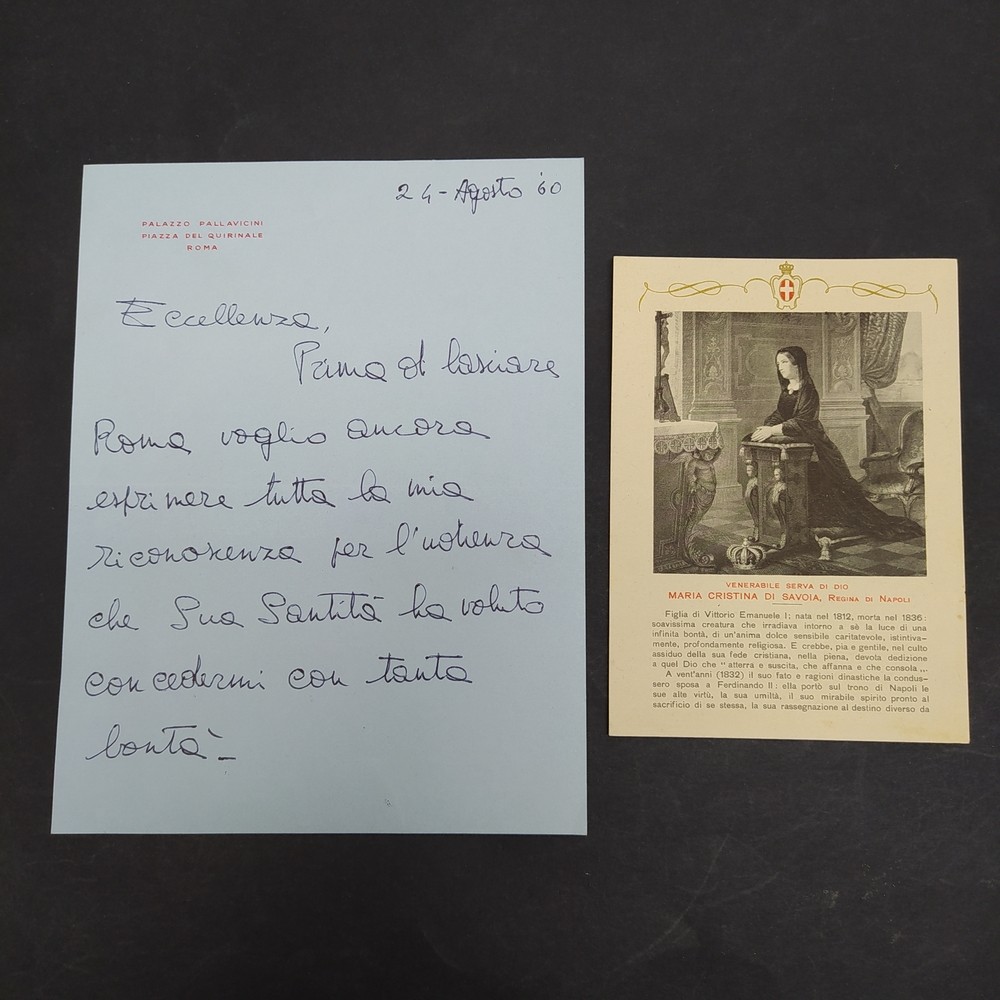 24-Agosto '60
PALAZZO PALLAVICINI
PIAZZA DEL QUIRINALE
ROMA
Eccellenza,
Prima di lasciare
Roma voglio ancora
esprimere tutta la mia
riconoscenza per l'udienza
che Sua Santità ha voluto
concedermi con tanta
bontà-
VENERABILE SERVA DI DIO
MARIA CRISTINA DI SAVOIA, REGINA DI NAPOLI
Figlia di Vittorio Emanuele I; nata nel 1812, morta nel 1836:
soavissima creatura che irradiava intorno a sè la luce di una
infinita bontà, di un'anima dolce sensibile caritatevole, istintiva-
mente, profondamente religiosa. E crebbe, pia e gentile, nel culto
assiduo della sua fede cristiana, nella piena, devota dedizione
a quel Dio che "atterra e suscita, che affanna e che consola„.
A vent'anni (1832) il suo fato e ragioni dinastiche la condus-
sero sposa a Ferdinando II: ella portò sul trono di Napoli le
sue alte virtù, la sua umiltà, il suo mirabile spirito pronto al
sacrificio di se stessa, la sua rassegnazione al destino diverso da